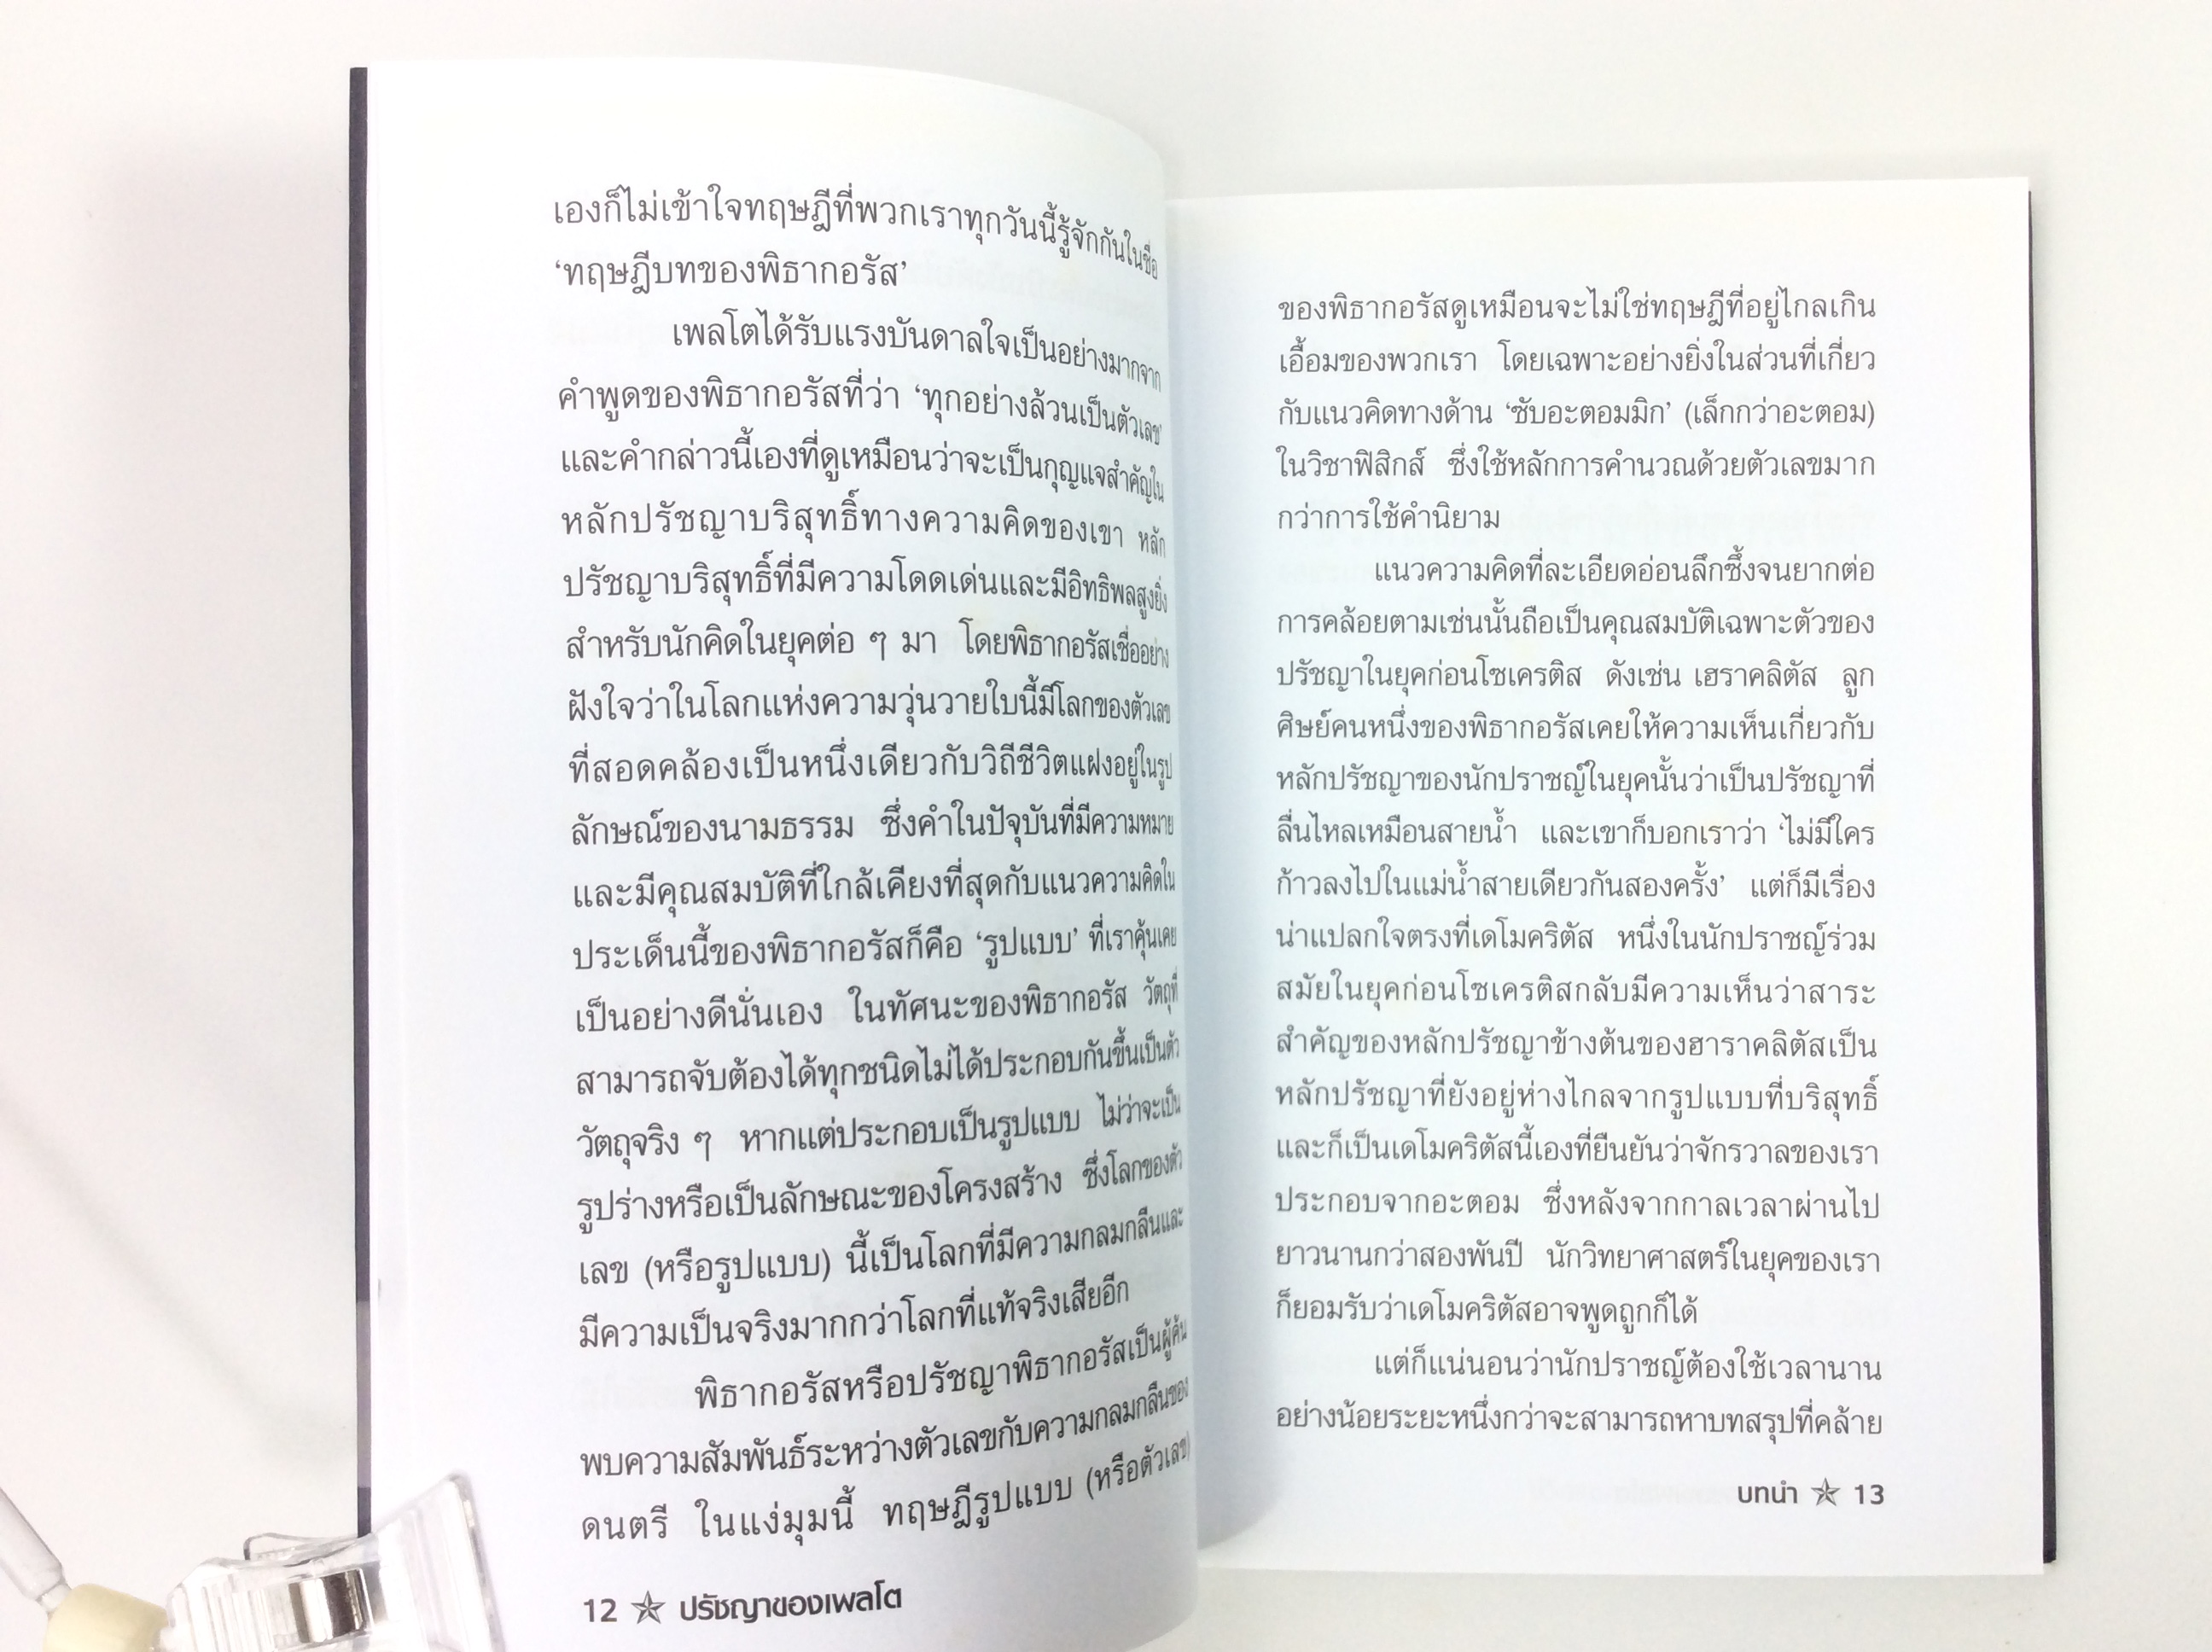 เองก็ไม่เข้าใจทฤษฎีที่พวกเราทุกวันนี้รู้จักกันในชื่อ
‘ทฤษฎีบทของพิธากอรัส’
เพลโตได้รับแรงบันดาลใจเป็นอย่างมากจาก
คำพูดของพิธากอรัสที่ว่า ‘ทุกอย่างล้วนเป็นตัวเลข’
และคำกล่าวนี้เองที่ดูเหมือนว่าจะเป็นกุญแจสำคัญใน
หลักปรัชญาบริสุทธิ์ทางความคิดของเขา หลัก
ปรัชญาบริสุทธิ์ที่มีความโดดเด่นและมีอิทธิพลสูงยิ่ง
สำหรับนักคิดในยุคต่อ ๆ มา โดยพิธากอรัสเชื่ออย่าง
ฝังใจว่าในโลกแห่งความวุ่นวายใบนี้มีโลกของตัวเลข
ที่สอดคล้องเป็นหนึ่งเดียวกับวิถีชีวิตแฝงอยู่ในรูป
ลักษณ์ของนามธรรม ซึ่งคำในปัจุบันที่มีความหมาย
และมีคุณสมบัติที่ใกล้เคียงที่สุดกับแนวความคิดใน
ประเด็นนี้ของพิธากอรัสก็คือ ‘รูปแบบ’ ที่เราคุ้นเคย
เป็นอย่างดีนั่นเอง ในทัศนะของพิธากอรัส วัตถุที่
สามารถจับต้องได้ทุกชนิดไม่ได้ประกอบกันขึ้นเป็นตัว
วัตถุจริง ๆ หากแต่ประกอบเป็นรูปแบบ ไม่ว่าจะเป็น
รูปร่างหรือเป็นลักษณะของโครงสร้าง ซึ่งโลกของตัว
เลข (หรือรูปแบบ) นี้เป็นโลกที่มีความกลมกลืนและ
มีความเป็นจริงมากกว่าโลกที่แท้จริงเสียอีก
พิธากอรัสหรือปรัชญาพิธากอรัสเป็นผู้ค้น
พบความสัมพันธ์ระหว่างตัวเลขกับความกลมกลืนของ
ดนตรี ในแง่มุมนี้ ทฤษฎีรูปแบบ (หรือตัวเลข)
12 ปรัชญาของเพลโต
ของพิธากอรัสดูเหมือนจะไม่ใช่ทฤษฎีที่อยู่ไกลเกิน
เอื้อมของพวกเรา โดยเฉพาะอย่างยิ่งในส่วนที่เกี่ยว
กับแนวคิดทางด้าน ‘ซับอะตอมมิก’ (เล็กกว่าอะตอม)
ในวิชาฟิสิกส์ ซึ่งใช้หลักการคำนวณด้วยตัวเลขมาก
กว่าการใช้คำนิยาม
แนวความคิดที่ละเอียดอ่อนลึกซึ้งจนยากต่อ
การคล้อยตามเช่นนั้นถือเป็นคุณสมบัติเฉพาะตัวของ
ปรัชญาในยุคก่อนโซเครติส ดังเช่น เฮราคลิตัส ลูก
ศิษย์คนหนึ่งของพิธากอรัสเคยให้ความเห็นเกี่ยวกับ
หลักปรัชญาของนักปราชญ์ในยุคนั้นว่าเป็นปรัชญาที่
ลื่นไหลเหมือนสายน้ำ และเขาก็บอกเราว่า ‘ไม่มีใคร
ก้าวลงไปในแม่น้ำสายเดียวกันสองครั้ง’ แต่ก็มีเรื่อง
น่าแปลกใจตรงที่เดโมคริตัส หนึ่งในนักปราชญ์ร่วม
สมัยในยุคก่อนโซเครติสกลับมีความเห็นว่าสาระ
สำคัญของหลักปรัชญาข้างต้นของฮาราคลิตัสเป็น
หลักปรัชญาที่ยังอยู่ห่างไกลจากรูปแบบที่บริสุทธิ์
และก็เป็นเดโมคริตัสนี้เองที่ยืนยันว่าจักรวาลของเรา
ประกอบจากอะตอม ซึ่งหลังจากกาลเวลาผ่านไป
ยาวนานกว่าสองพันปี นักวิทยาศาสตร์ในยุคของเรา
ก็ยอมรับว่าเดโมคริตัสอาจพูดถูกก็ได้
แต่ก็แน่นอนว่านักปราชญ์ต้องใช้เวลานาน
อย่างน้อยระยะหนึ่งกว่าจะสามารถหาบทสรุปที่คล้าย
บทนำ 13